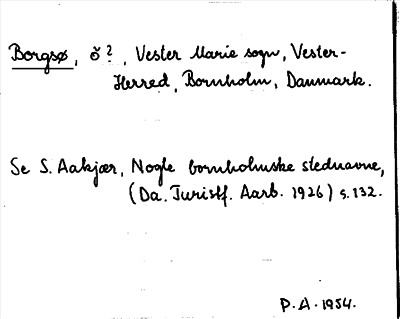 Borgsø, ö?, Vester Marie sogn, Vester-
Herred, Bornholm, Danmark.
Se S. Aakjær, Nogle bornholmske stednavne,
(Da. Turistf. Aarb. 1926) s. 132.
P.A. 1954.